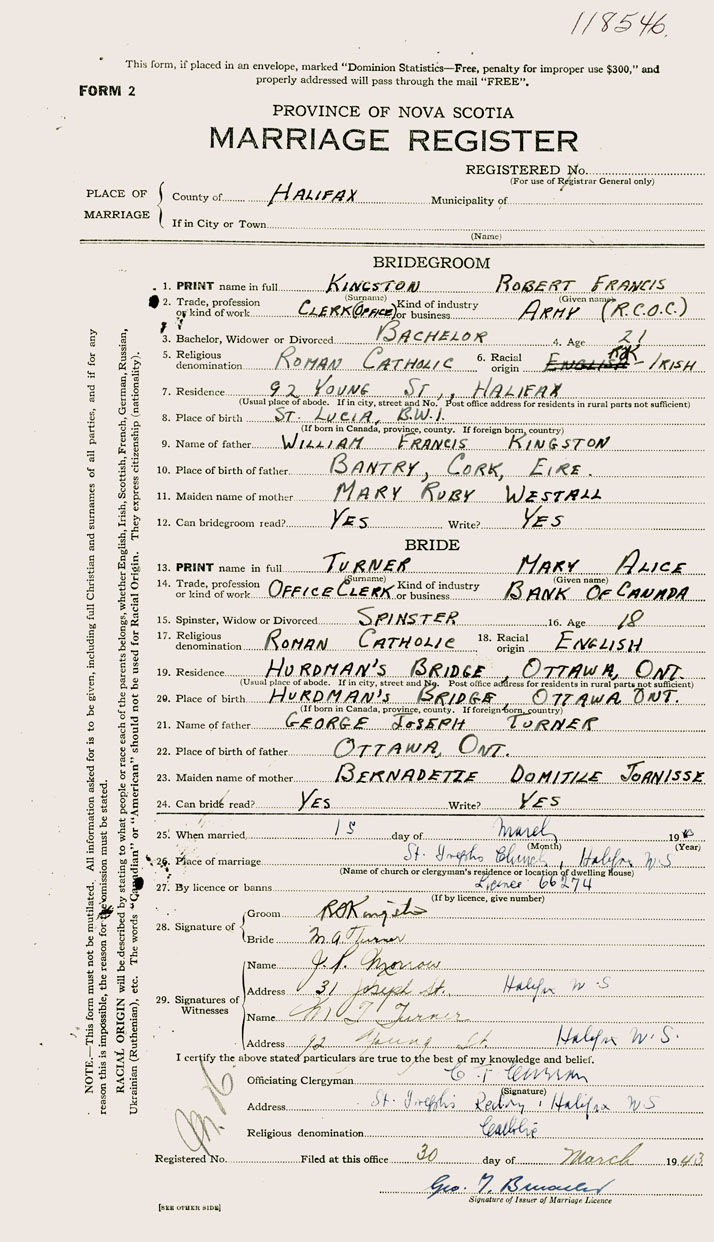 118546.
This form, if placed in an envelope, marked "Dominion Statistics—Free, penalty for improper use $300," and
properly addressed will pass through the mail "FREE".
FORM 2
PROVINCE OF NOVA SCOTIA
MARRIAGE REGISTER
REGISTERED No.
(For use of Registrar General only)
PLACE OF MARRIAGE
County of HALIFAX Municipality of
If in City or Town
(Name)
BRIDEGROOM
1. PRINT name in full KINGSTON ROBERT FRANCIS
(Surname) (Given name)
2. Trade, profession or kind of work CLERK (OFFICE) Kind of industry or business ARMY (R.C.O.C.)
3. Bachelor, Widower or Divorced BACHELOR 4. Age 21
5. Religious denomination ROMAN CATHOLIC 6. Racial origin ENGLISH - IRISH
7. Residence 92 YOUNG ST., HALIFAX
(Usual place of abode. If in city, street and No. Post office address for residents in rural parts not sufficient)
8. Place of birth ST. LUCIA, B.W.I.
(If born in Canada, province, county. If foreign born, country)
9. Name of father WILLIAM FRANCIS KINGSTON
10. Place of birth of father BANTRY, CORK, EIRE.
11. Maiden name of mother MARY RUBY WESTALL
12. Can bridegroom read? YES Write? YES
BRIDE
13. PRINT name in full TURNER MARY ALICE
(Surname) (Given name)
14. Trade, profession or kind of work OFFICE CLERK Kind of industry or business BANK OF CANADA
15. Spinster, Widow or Divorced SPINSTER 16. Age 18
17. Religious denomination ROMAN CATHOLIC 18. Racial origin ENGLISH
19. Residence HURDMAN'S BRIDGE, OTTAWA, ONT.
(Usual place of abode. If in city, street and No. Post office address for residents in rural parts not sufficient)
20. Place of birth HURDMAN'S BRIDGE OTTAWA ONT.
(If born in Canada, province, county. If foreign born, country)
21. Name of father GEORGE JOSEPH TURNER
22. Place of birth of father OTTAWA, ONT.
23. Maiden name of mother BERNADETTE DOMITILE JOANISSE
24. Can bride read? YES Write? YES
25. When married, 15 day of March 19
(Month) (Year)
26. Place of marriage St. Josephs Church, Halifax N.S
(Name of church or clergyman's residence or location of dwelling house)
27. By licence or banns Licence 66274
(If by licence, give number)
28. Signature of
Groom R F Kingston
Bride M. A. Turner
29. Signatures of Witnesses
Name J. P. Morrow
Address 31 Joseph St. Halifax N S
Name Turner
Address 92 Young St Halifax N.S.
I certify the above stated particulars are true to the best of my knowledge and belief.
Officiating Clergyman
(Signature)
Address St. Josephs Halifax N S
Religious denomination Catholic
Registered No. Filed at this office 30 day of March 1943
Signature of Issuer of Marriage Licence
[SEE OTHER SIDE]
NOTE.—This form must not be mutilated. All information asked for is to be given, including full Christian and surnames of all parties, and if for any
reason this is impossible, the reason for the omission must be stated.
RACIAL ORIGIN will be described by stating to what people or race each of the parents belongs, whether English, Irish, Scottish, French, German, Russian,
Ukrainian (Ruthenian), etc. The words "Canadian" or "American" should not be used for Racial Origin. They express citizenship (nationality).